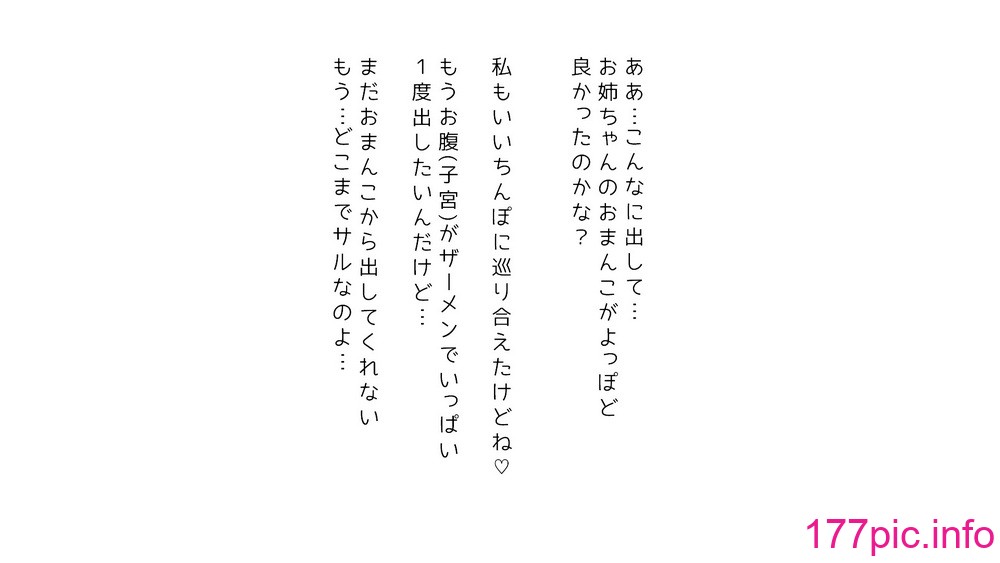 ああ…こんなに出して…
お姉ちゃんのおまんこがよっぽど
良かったのかな?
私もいいちんぽに巡り合えたけどね♡
もうお腹(子宮)がザーメンでいっぱい
1度出したいんだけど…
まだおまんこから出してくれない
もう…どこまでサルなのよ…
177pic.info